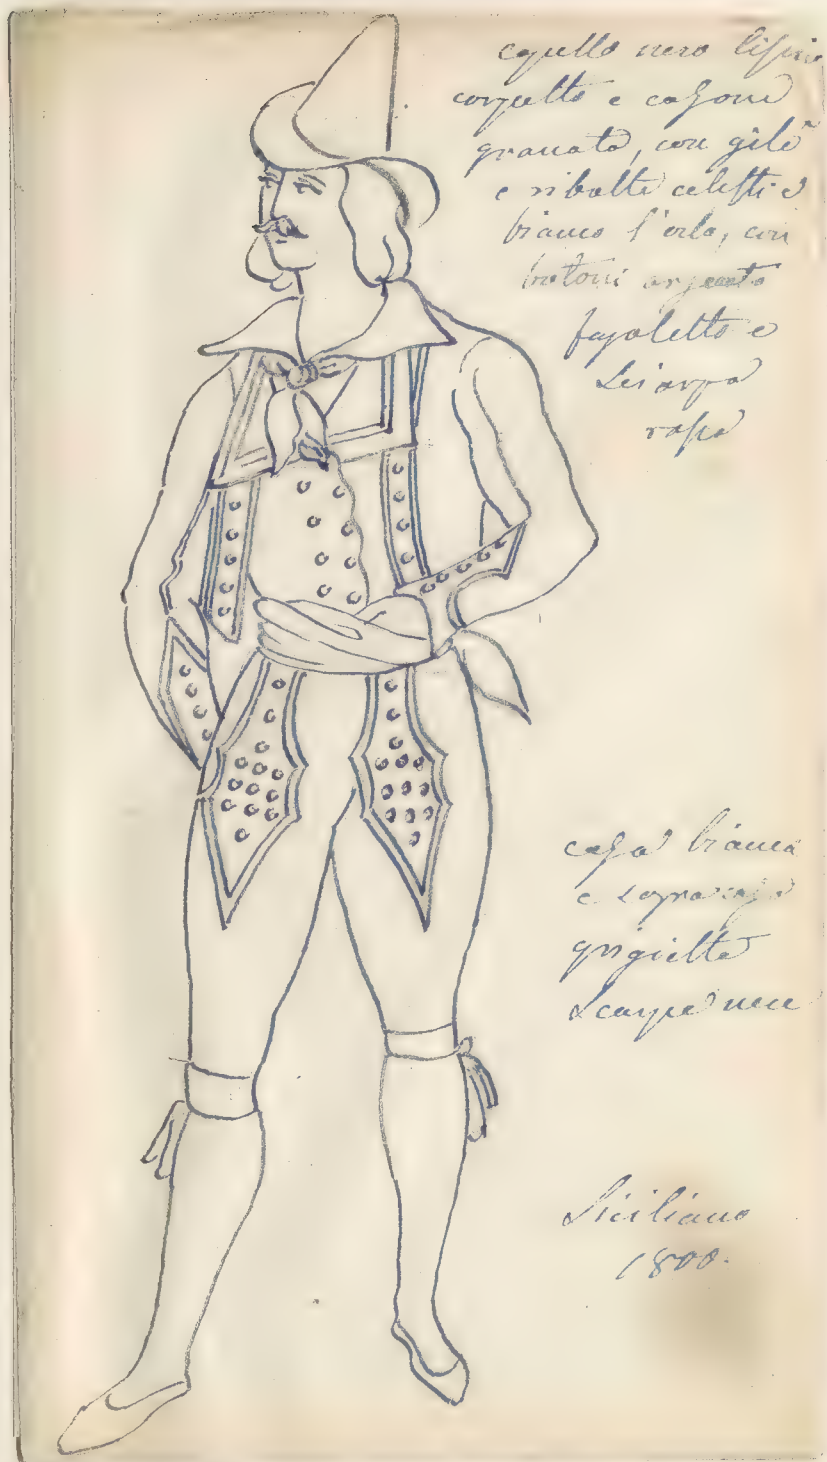 capello nero liscio
corpetto e calzoni
granata, con gilè
e ribalte celesti e
bianco l'orlo, con
botoni argento
fazoletto e
sciarpa
rossa
calza bianca
e sopracalza
grigietta
scarpe nere
Siciliano
1800.